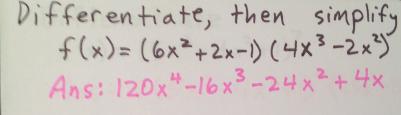 Differentiate, then simplify
f(x) = (6x²+2x-1) (4x³-2x²)
Ans: 120x⁴-16x³-24x²+4x